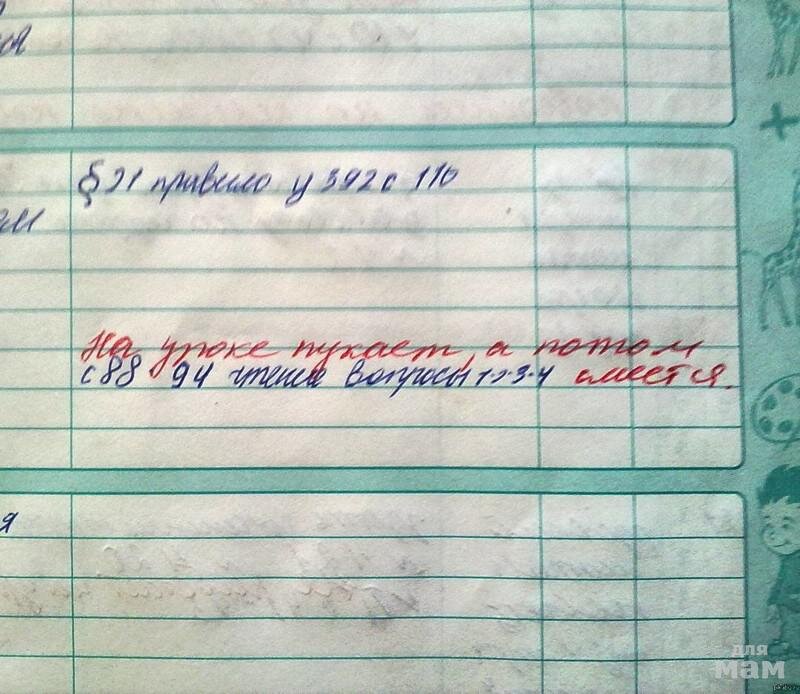 ся
§ 21 правило у 392 с 116
ам
На уроке пукает, а потом
с 88 94 чтение вопросы 1-2-3-4 смеется.
я
для
мам